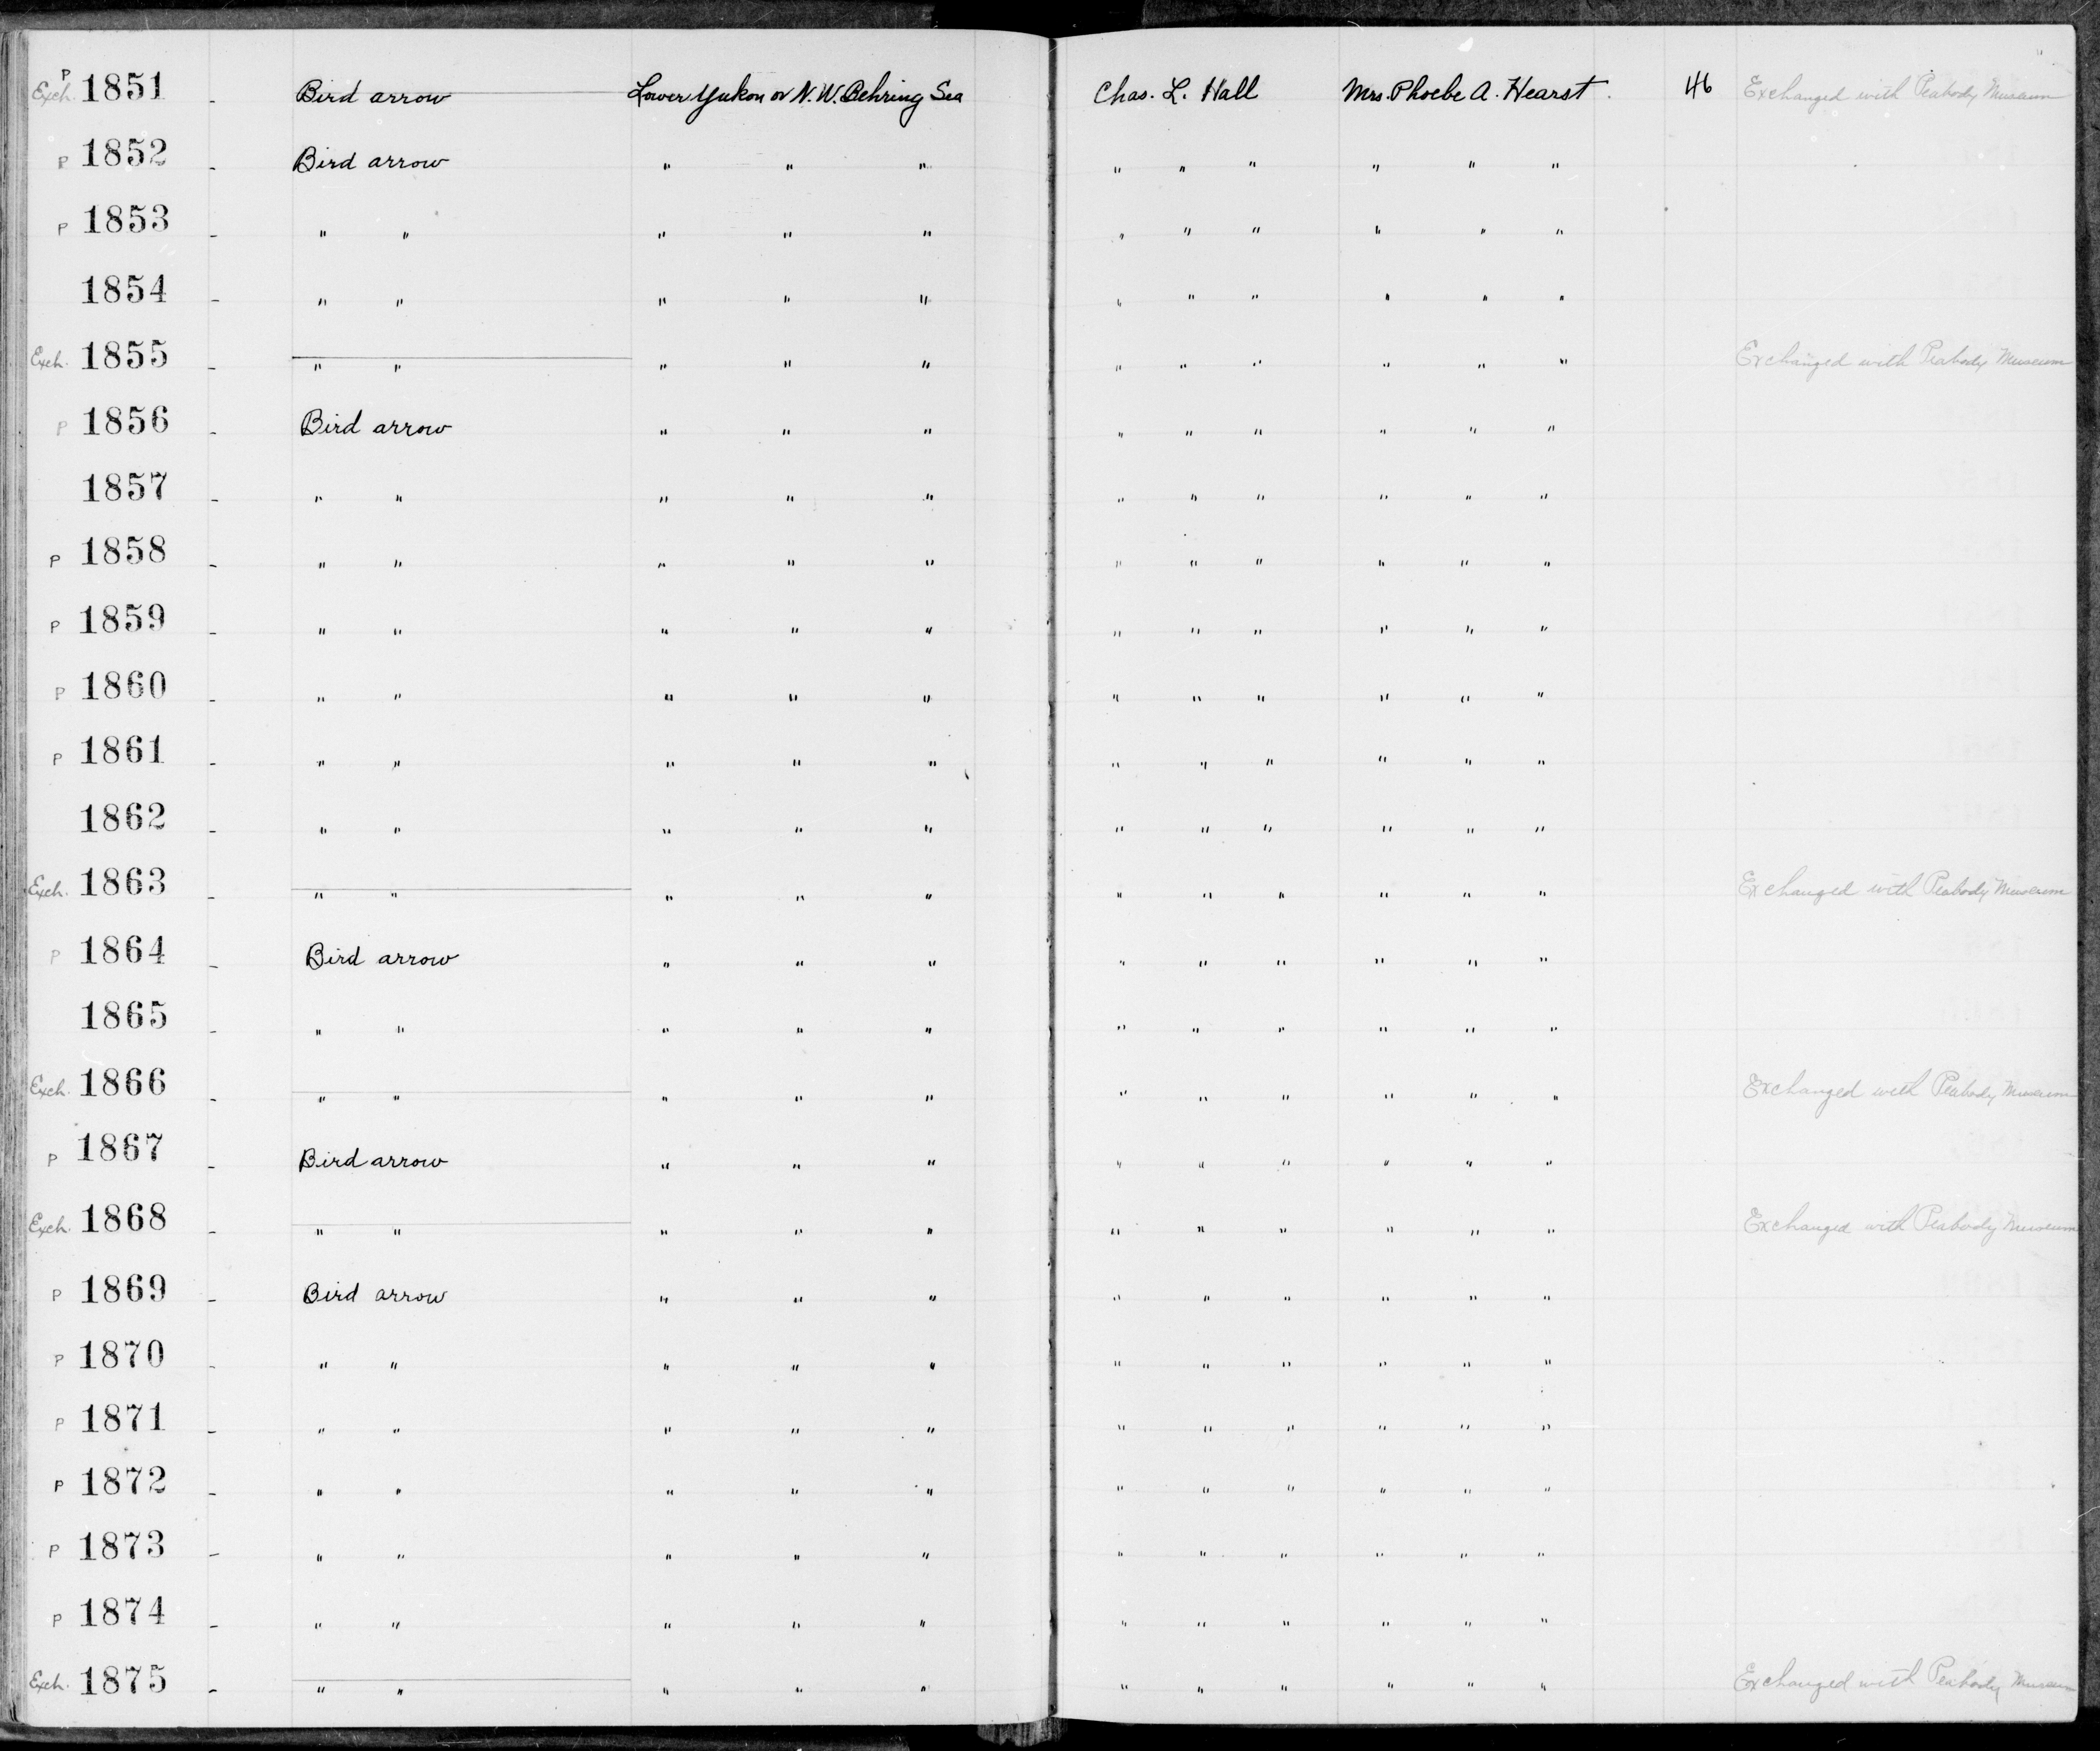 P Exch. 1851 - Bird arrow Lower Yukon or N.W. Behring Sea Chas. L. Hall Mrs. Phoebe A. Hearst. 46 Exchanged with Peabody Museum
P 1852 - Bird arrow " " " " " " " " "
P 1853 - " " " " " " " " " " "
1854 - " " " " " " " " " " "
Exch. 1855 - " " " " " " " " " " " Exchanged with Peabody Museum
P 1856 - Bird arrow " " " " " " " " "
1857 - " " " " " " " " " " "
P 1858 - " " " " " " " " " " "
P 1859 - " " " " " " " " " " "
P 1860 - " " " " " " " " " " "
P 1861 - " " " " " " " " " " "
1862 - " " " " " " " " " " "
Exch. 1863 - " " " " " " " " " " " Exchanged with Peabody Museum
P 1864 - Bird arrow " " " " " " " " "
1865 - " " " " " " " " " " "
Exch. 1866 - " " " " " " " " " " " Exchanged with Peabody Museum
P 1867 - Bird arrow " " " " " " " " "
Exch. 1868 - " " " " " " " " " " " Exchanged with Peabody Museum
P 1869 - Bird arrow " " " " " " " " "
P 1870 - " " " " " " " " " " "
P 1871 - " " " " " " " " " " "
P 1872 - " " " " " " " " " " "
P 1873 - " " " " " " " " " " "
P 1874 - " " " " " " " " " " "
Exch. 1875 - " " " " " " " " " " " Exchanged with Peabody Museum